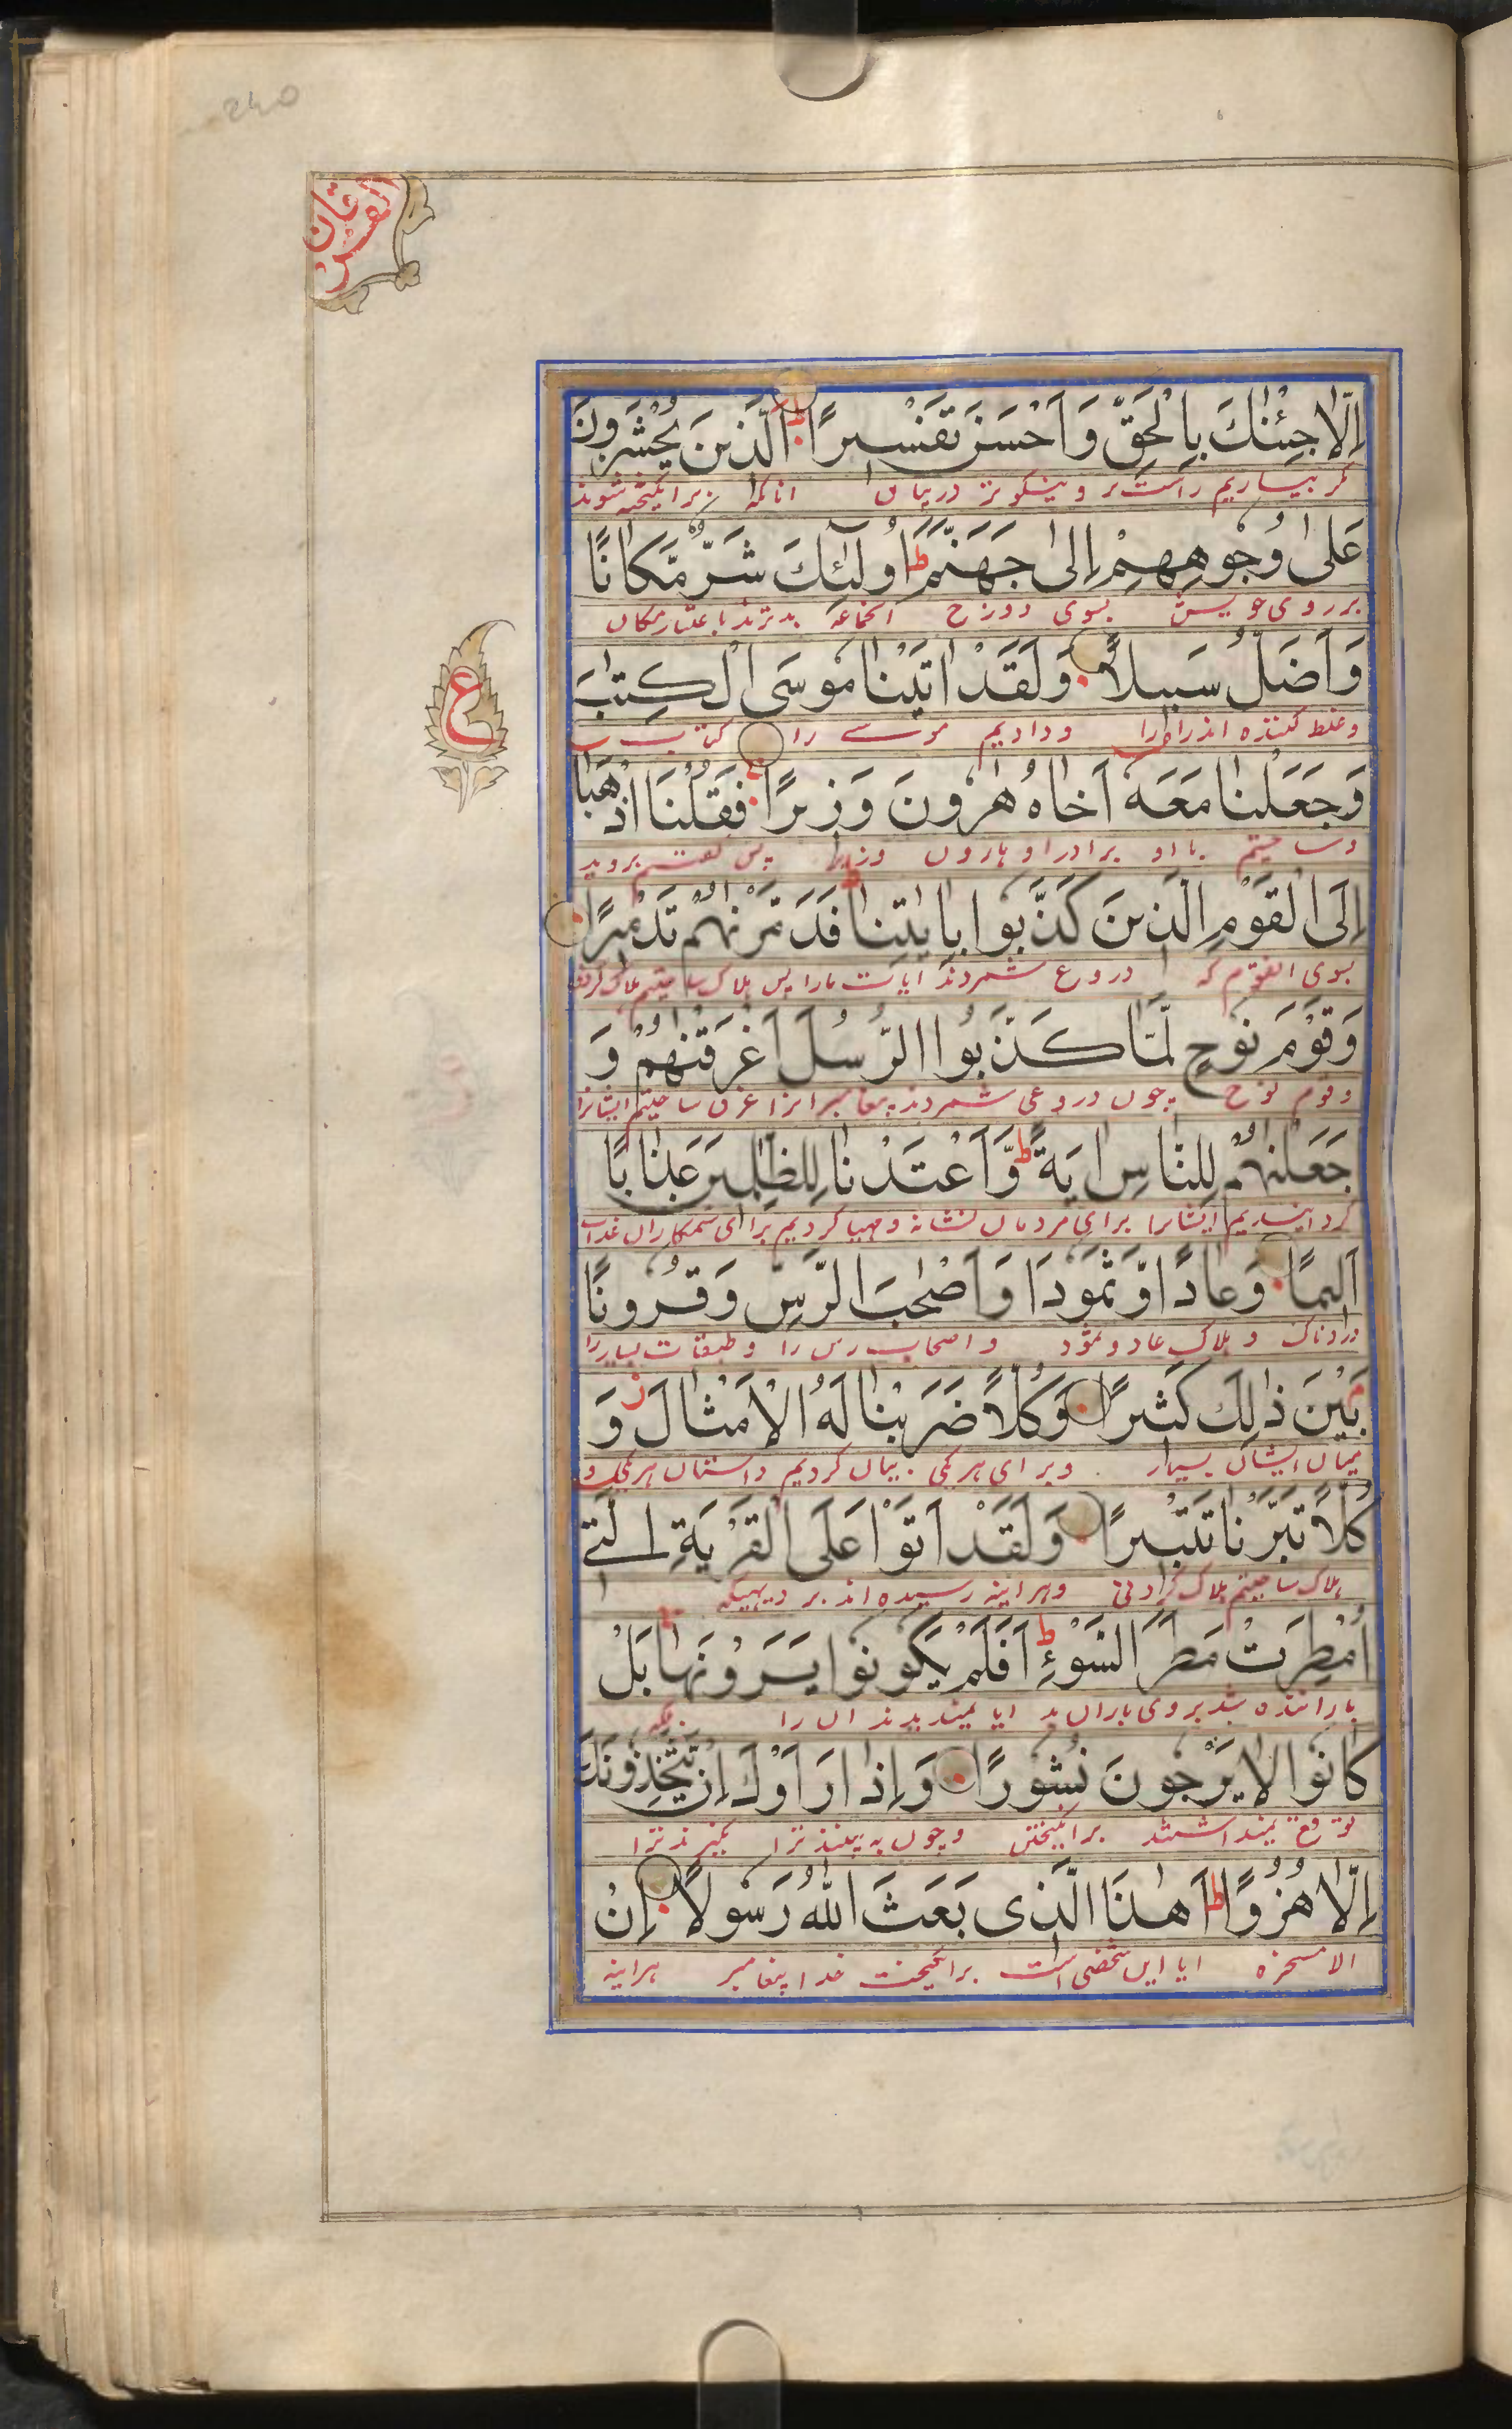 240
الفرقان
اِلّا جِئْنٰكَ بِالْحَقِّ وَ اَحْسَنَ تَفْسيرًا ط اَلَّذينَ يُحْشَرُونَ
مگر بیاریم راست‌تر و نیکوتر در بیان انانکه برانگیخته شوند
عَلىٰ وُجوهِهِمْ اِلىٰ جَهَنَّمَ ط اُولٰٓئِكَ شَرٌّ مَّكانًا
بر روی خویش بسوی دوزخ انجماعه بدترند باعتبار مکان
وَ اَضَلُّ سَبيلًا وَ لَقَدْ اٰتَيْنا موسَى الْكِتٰبَ
ع
وغلط کننده اند راه را و دادیم موسے را کتاب
وَ جَعَلْنا مَعَهٗ اَخاهُ هٰرونَ وَزيرًا فَقُلْنَا اذْهَبا
وساختیم با او برادر او هارون وزیر پس گفتیم بروید
اِلَى الْقَوْمِ الَّذينَ كَذَّبوا بِاٰيٰتِنا ط فَدَمَّرْنٰهُمْ تَدْميرًا
بسوی انقوم که دروغ شمردند ایات مارا پس هلاک ساختیم هلاک کردنی
وَ قَوْمَ نوحٍ لَّمّا كَذَّبُوا الرُّسُلَ اَغْرَقْنٰهُمْ وَ
وقوم نوح چون دروغی شمردند پیغامبرانرا غرق ساختیم ایشانرا
جَعَلْنٰهُمْ لِلنّاسِ اٰيَةً ط وَّ اَعْتَدْنا لِلظّٰلِمينَ عَذابًا
گردانیدیم ایشانرا برای مردمان نشانه و مهیا کردیم برای ستمکاران عذاب
اَليمًا وَ عادًا وَّ ثَمودَا وَ اَصْحٰبَ الرَّسِّ وَ قُرونًا
دردناک و هلاک عاد و ثمود و اصحاب رس را و طبقات بسیار را
بَيْنَ ذٰلِكَ كَثيرًا وَ كُلًّا ضَرَبْنا لَهُ الْاَمْثالَ ز وَ
میان ایشان بسیار و برای هر یکی بیان کردیم داستان هر یکی و
كُلًّا تَبَّرْنا تَتْبيرًا وَ لَقَدْ اَتَوْا عَلَى الْقَرْيَةِ الَّتے
هلاک ساختیم هلاک کردنی و هراینه رسیده اند بر دیهیکه
اُمْطِرَتْ مَطَرَ السَّوْءِ ط اَفَلَمْ يَكونوا يَرَوْنَها بَلْ
بارانیده شد بروی باران بد ایا نمیدیدند ان را بلکه
كانوا لا يَرْجونَ نُشورًا وَ اِذا رَاَوْكَ اِنْ يَّتَّخِذونَكَ
توقع نمیداشتند برانگیختن و چون به بینند ترا نگیرند ترا
اِلّا هُزُوًا ط اَهٰذَا الَّذى بَعَثَ اللهُ رَسولًا اِنْ
الا مسخره ایا این شخصی است برانگیخت خدا پیغامبر هراینه